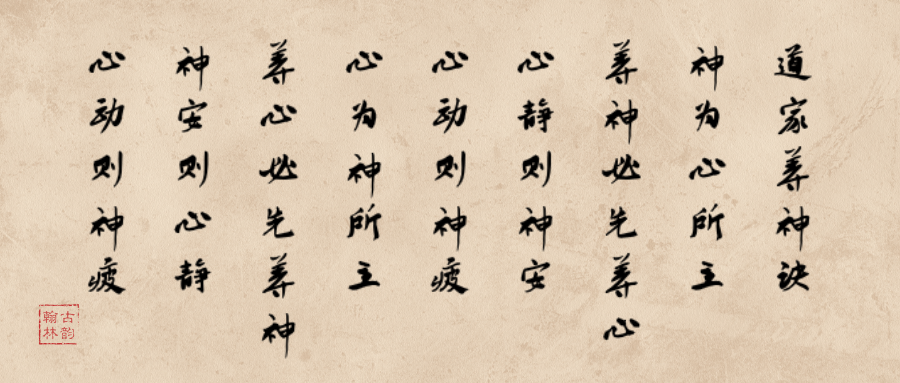 道家养神诀
神为心所主
养神必先养心
心静则神安
心动则神疲
心为神所主
养心必先养神
神安则心静
心动则神疲
古韵
翰林